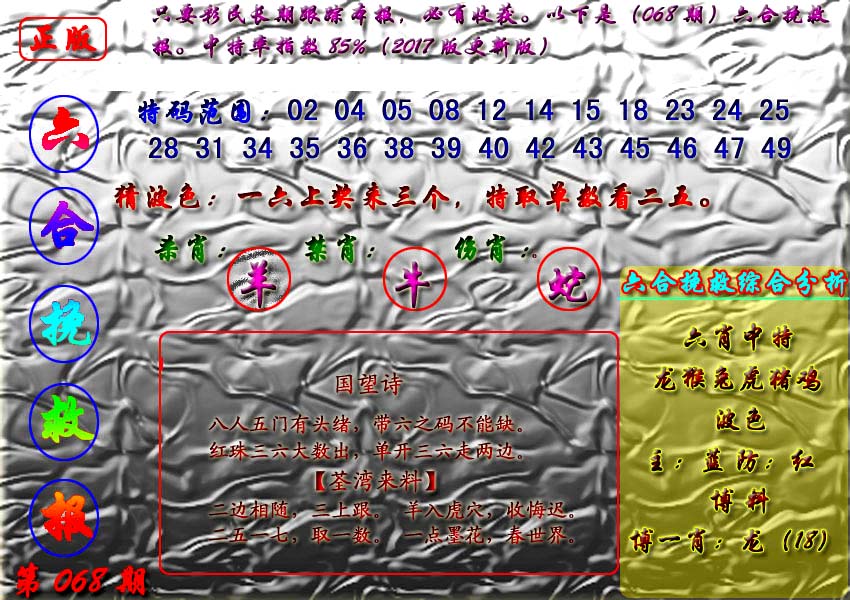 只要彩民长期跟踪本报，必有收获。以下是（068期）六合挽救
报。中特率指数85%（2017版更新版）
正版
六
合
挽
救
报
第068期
特码范围：02 04 05 08 12 14 15 18 23 24 25
28 31 34 35 36 38 39 40 42 43 45 46 47 49
猜波色：一六上奖来三个，特取单数看二五。
杀肖：羊 禁肖：牛 伤肖：蛇
国望诗
八人五门有头绪，带六之码不能缺。
红珠三六大数出，单开三六走两边。
【荃湾来料】
二边相随，三上跟。 羊入虎穴，收悔迟。
二五一七，取一数。 一点墨花，春世界。
六合挽救综合分析
六肖中特
龙猴兔虎猪鸡
波色
主：蓝防：红
博料
博一肖：龙（18）